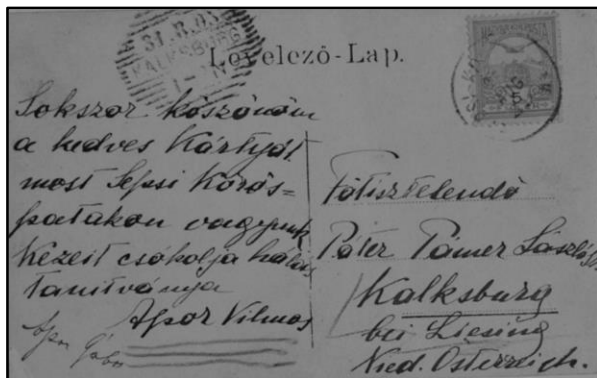 31. 8. 03
KALKSBURG
Levelező-Lap.
Sokszor köszönöm
a kedves Kártyát
most Sepsi Körös-
patakon vagyunk
Kezeit csókolja hálás
tanitványa
Apor Vilmos
Apor Gábor
Főtisztelendő
Páter Tamer László
Kalksburg
bei Liesing
Nied. Österreich.